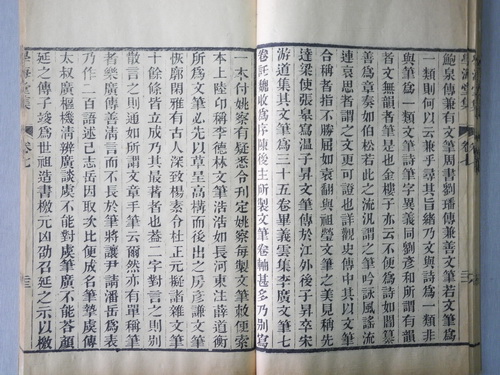 學海堂集 卷七 三
鮑泉傳兼有文筆周書劉璠傳兼善文筆若文筆爲
一類則何以云兼乎尋其旨緒乃文與詩爲一類非
與筆爲一類文筆詩筆字異義同劉彥和所謂有韻
者文無韻者筆是也金樓子亦云不便爲詩如閻纂
善爲章奏如伯松若此之流汎謂之筆吟詠風謠流
連哀思者謂之文更可證也詳觀史傳中其以文筆
合稱者指不勝屈如袁翻與祖瑩文筆之美見稱先
達梁使張臯寫溫子昇文筆傳於江外後子昇卒宋
游道集其文筆爲三十五卷畢義雲集李廣文筆七
卷託魏收爲序陳後主所製文筆卷軸甚多乃別寫
一本付姚察有疑悉令刊定姚察每製文筆敕便索
本上陸卬稱李德林文筆浩浩如長河東注薛道衡
所爲文筆必先以草呈高構而後出之房彥謙文筆
恢廓閑雅有古人深致楊素令杜正元擬諸雜文筆
十餘條皆立成乃其最著者也蓋二字對言之則別
散言之則通如所謂文章手筆云爾然亦有單稱筆
者樂廣傳善清言而不長於筆將讓尹請潘岳爲表
乃作二百語述己志岳因取次比便成名筆摯虞傳
太叔廣樞機清辨廣談虞不能對虞筆廣不能答顏
延之傳子竣爲世祖造書檄元凶劭召延之示以檄
學海堂集 卷七